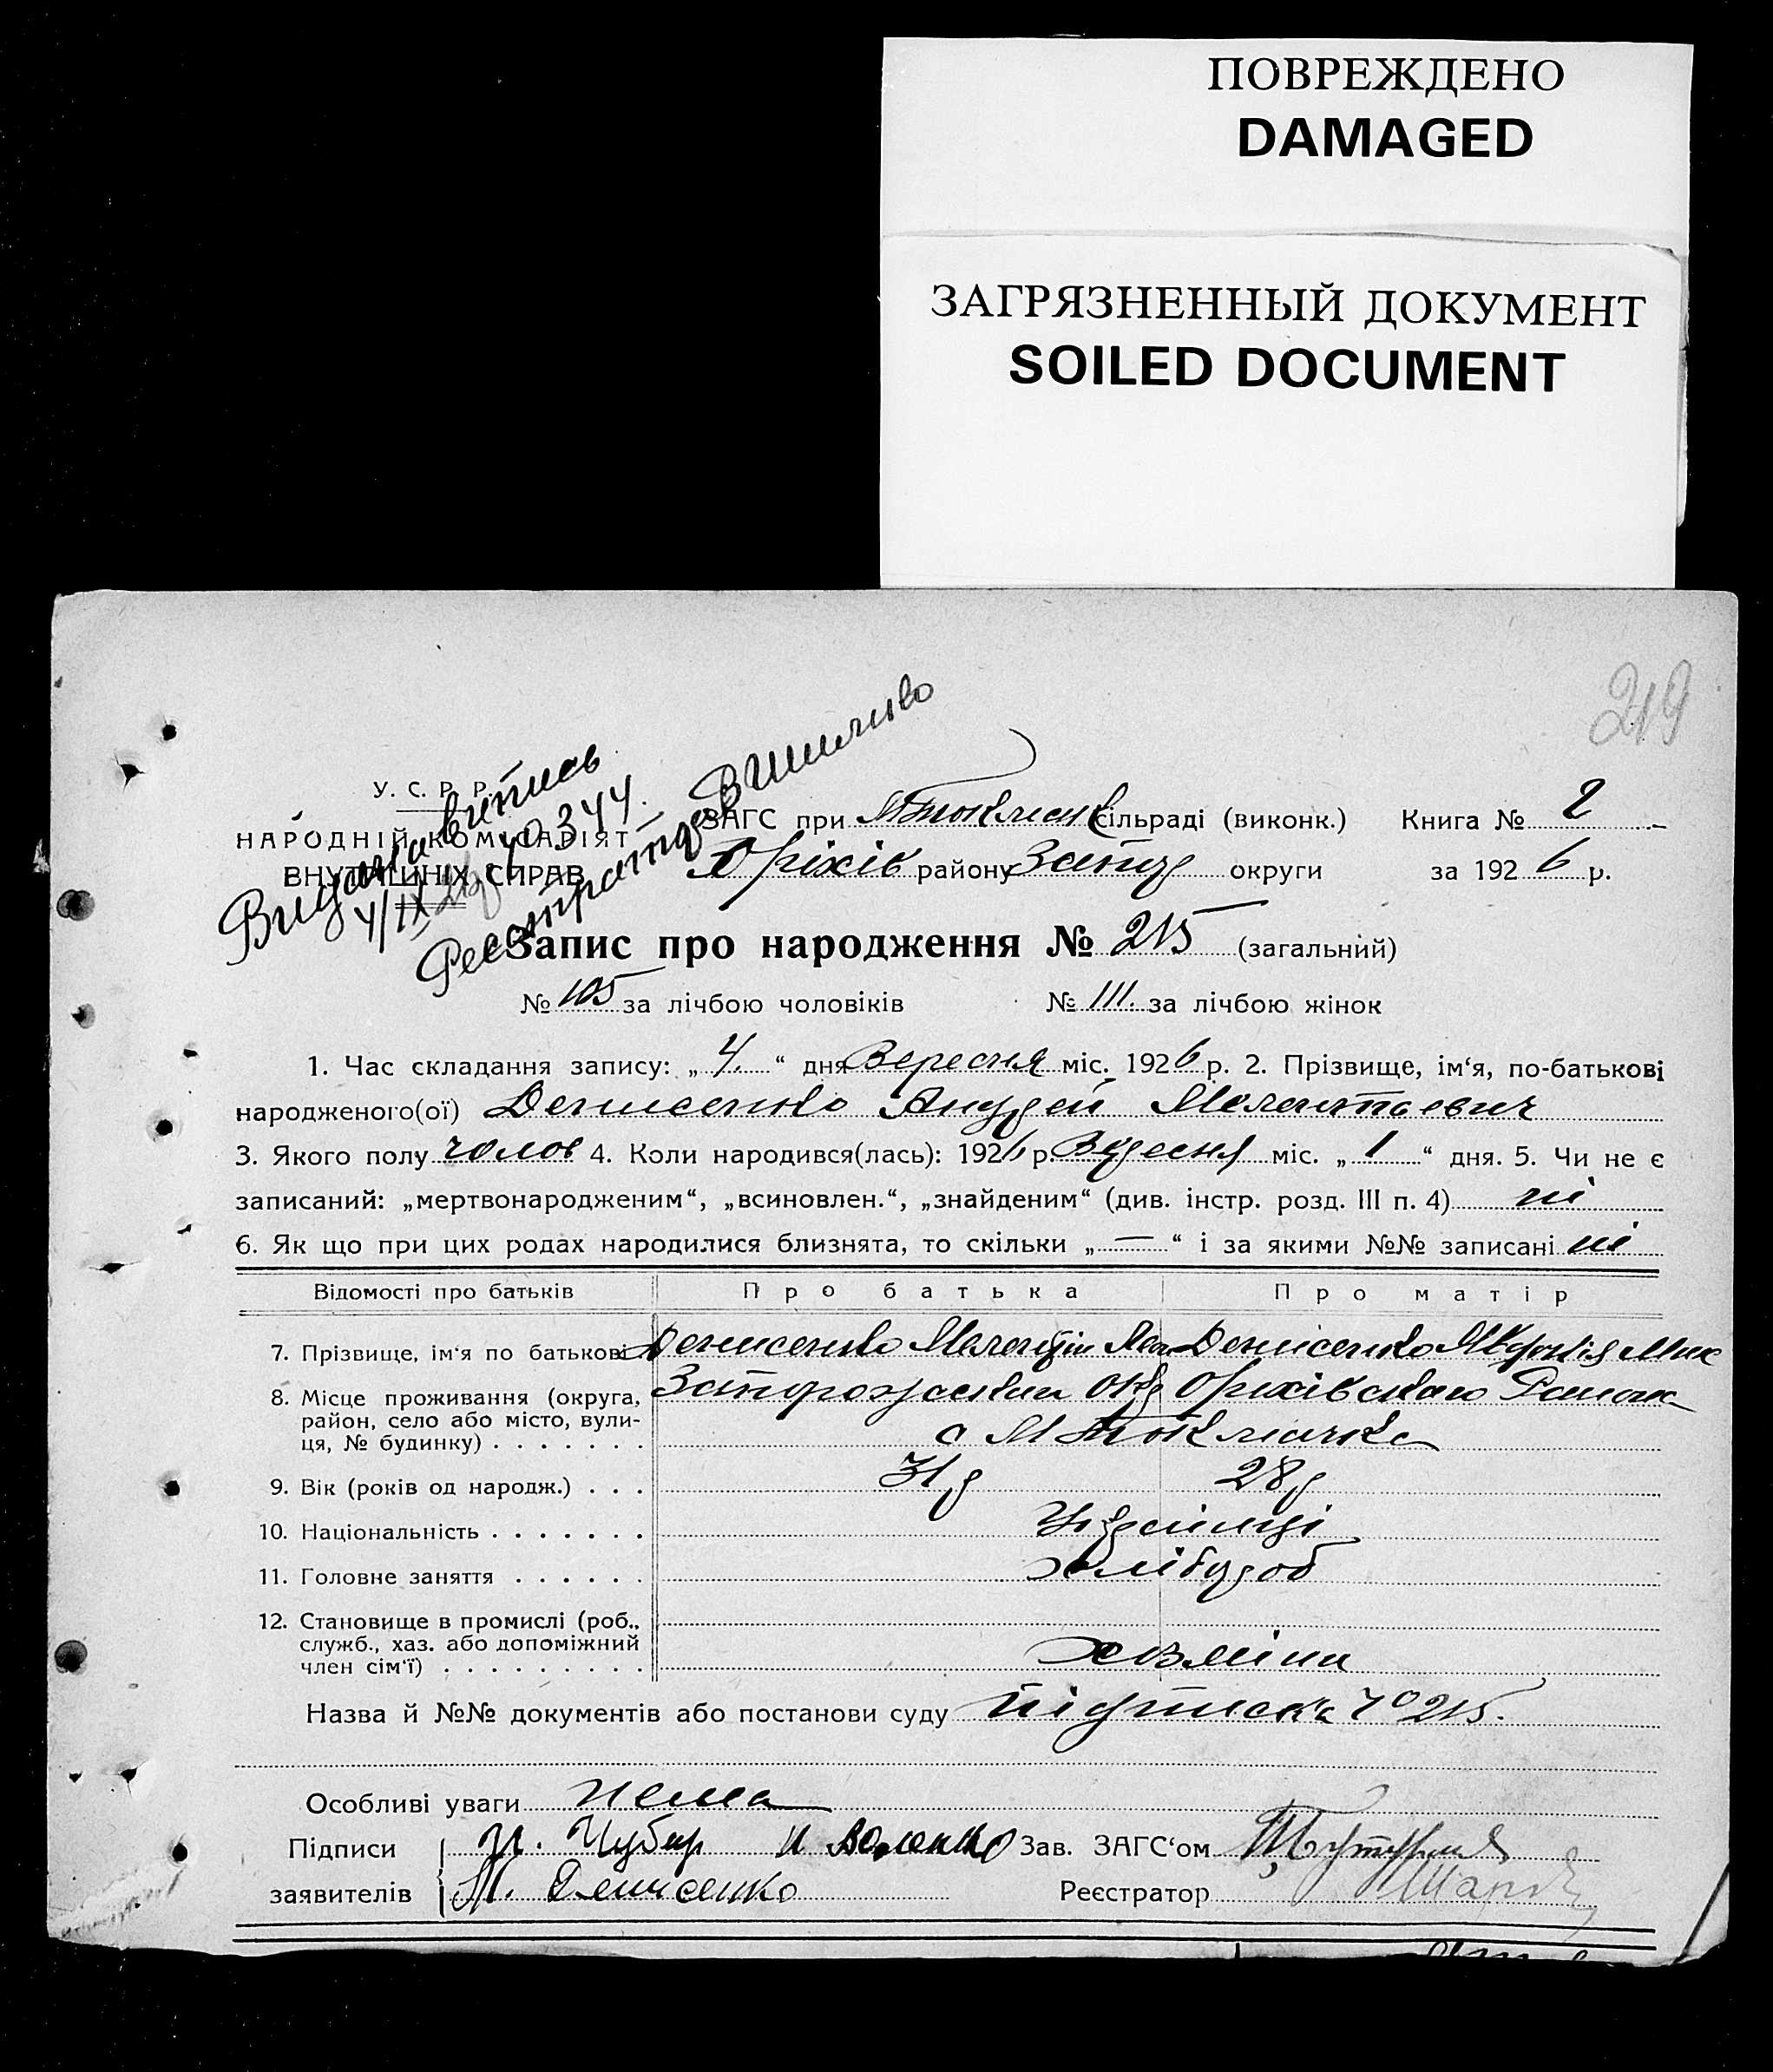 ПОВРЕЖДЕНО
DAMAGED
ЗАГРЯЗНЕННЫЙ ДОКУМЕНТ
SOILED DOCUMENT
219
Видана випись
4/IX 26р № 344.
Реєстратор
У. С. Р. Р.
НАРОДНІЙ КОМІСАРІЯТ
ВНУТРІШНІХ СПРАВ
ЗАГС при МТокмацк сільраді (виконк.) Книга № 2
Оріхів району Запор округи за 1926 р.
Запис про народження № 215 (загальний)
№ 105 за лічбою чоловіків № 111. за лічбою жінок
1. Час складання запису: „ 4. “ дня Вересня міс. 1926 р. 2. Прізвище, ім‘я, по-батькові
народженого(ої) Денисенко Андрей Мелентьевич
3. Якого полу чолов 4. Коли народився(лась): 1926 р. Вересня міс. „ 1 “ дня. 5. Чи не є
записаний: „мертвонародженим“, „всиновлен.“, „знайденим“ (див. інстр. розд. III п. 4) ні
6. Як що при цих родах народилися близнята, то скільки „ — “ і за якими №№ записані ні
Відомості про батьків Про батька Про матір
7. Прізвище, ім‘я по батькові Денисенко Мелентій Денисенко Мик
8. Місце проживання (округа, Запорожської Окр Оріхівського Району
район, село або місто, вули-
ця, № будинку) . . . . . . . с М Токмачка
9. Вік (років од народж.) . . . 31 р 28 р
10. Національність . . . . . . . Українці
11. Головне заняття . . . . . . хлібороб
12. Становище в промислі (роб.,
служб., хаз. або допоміжний
член сім‘ї) . . . . . . . . . хозяїни
Назва й №№ документів або постанови суду підписка № 215.
Особливі уваги нема
Підписи Зав. ЗАГС‘ом
заявителів М. Денисенко Реєстратор